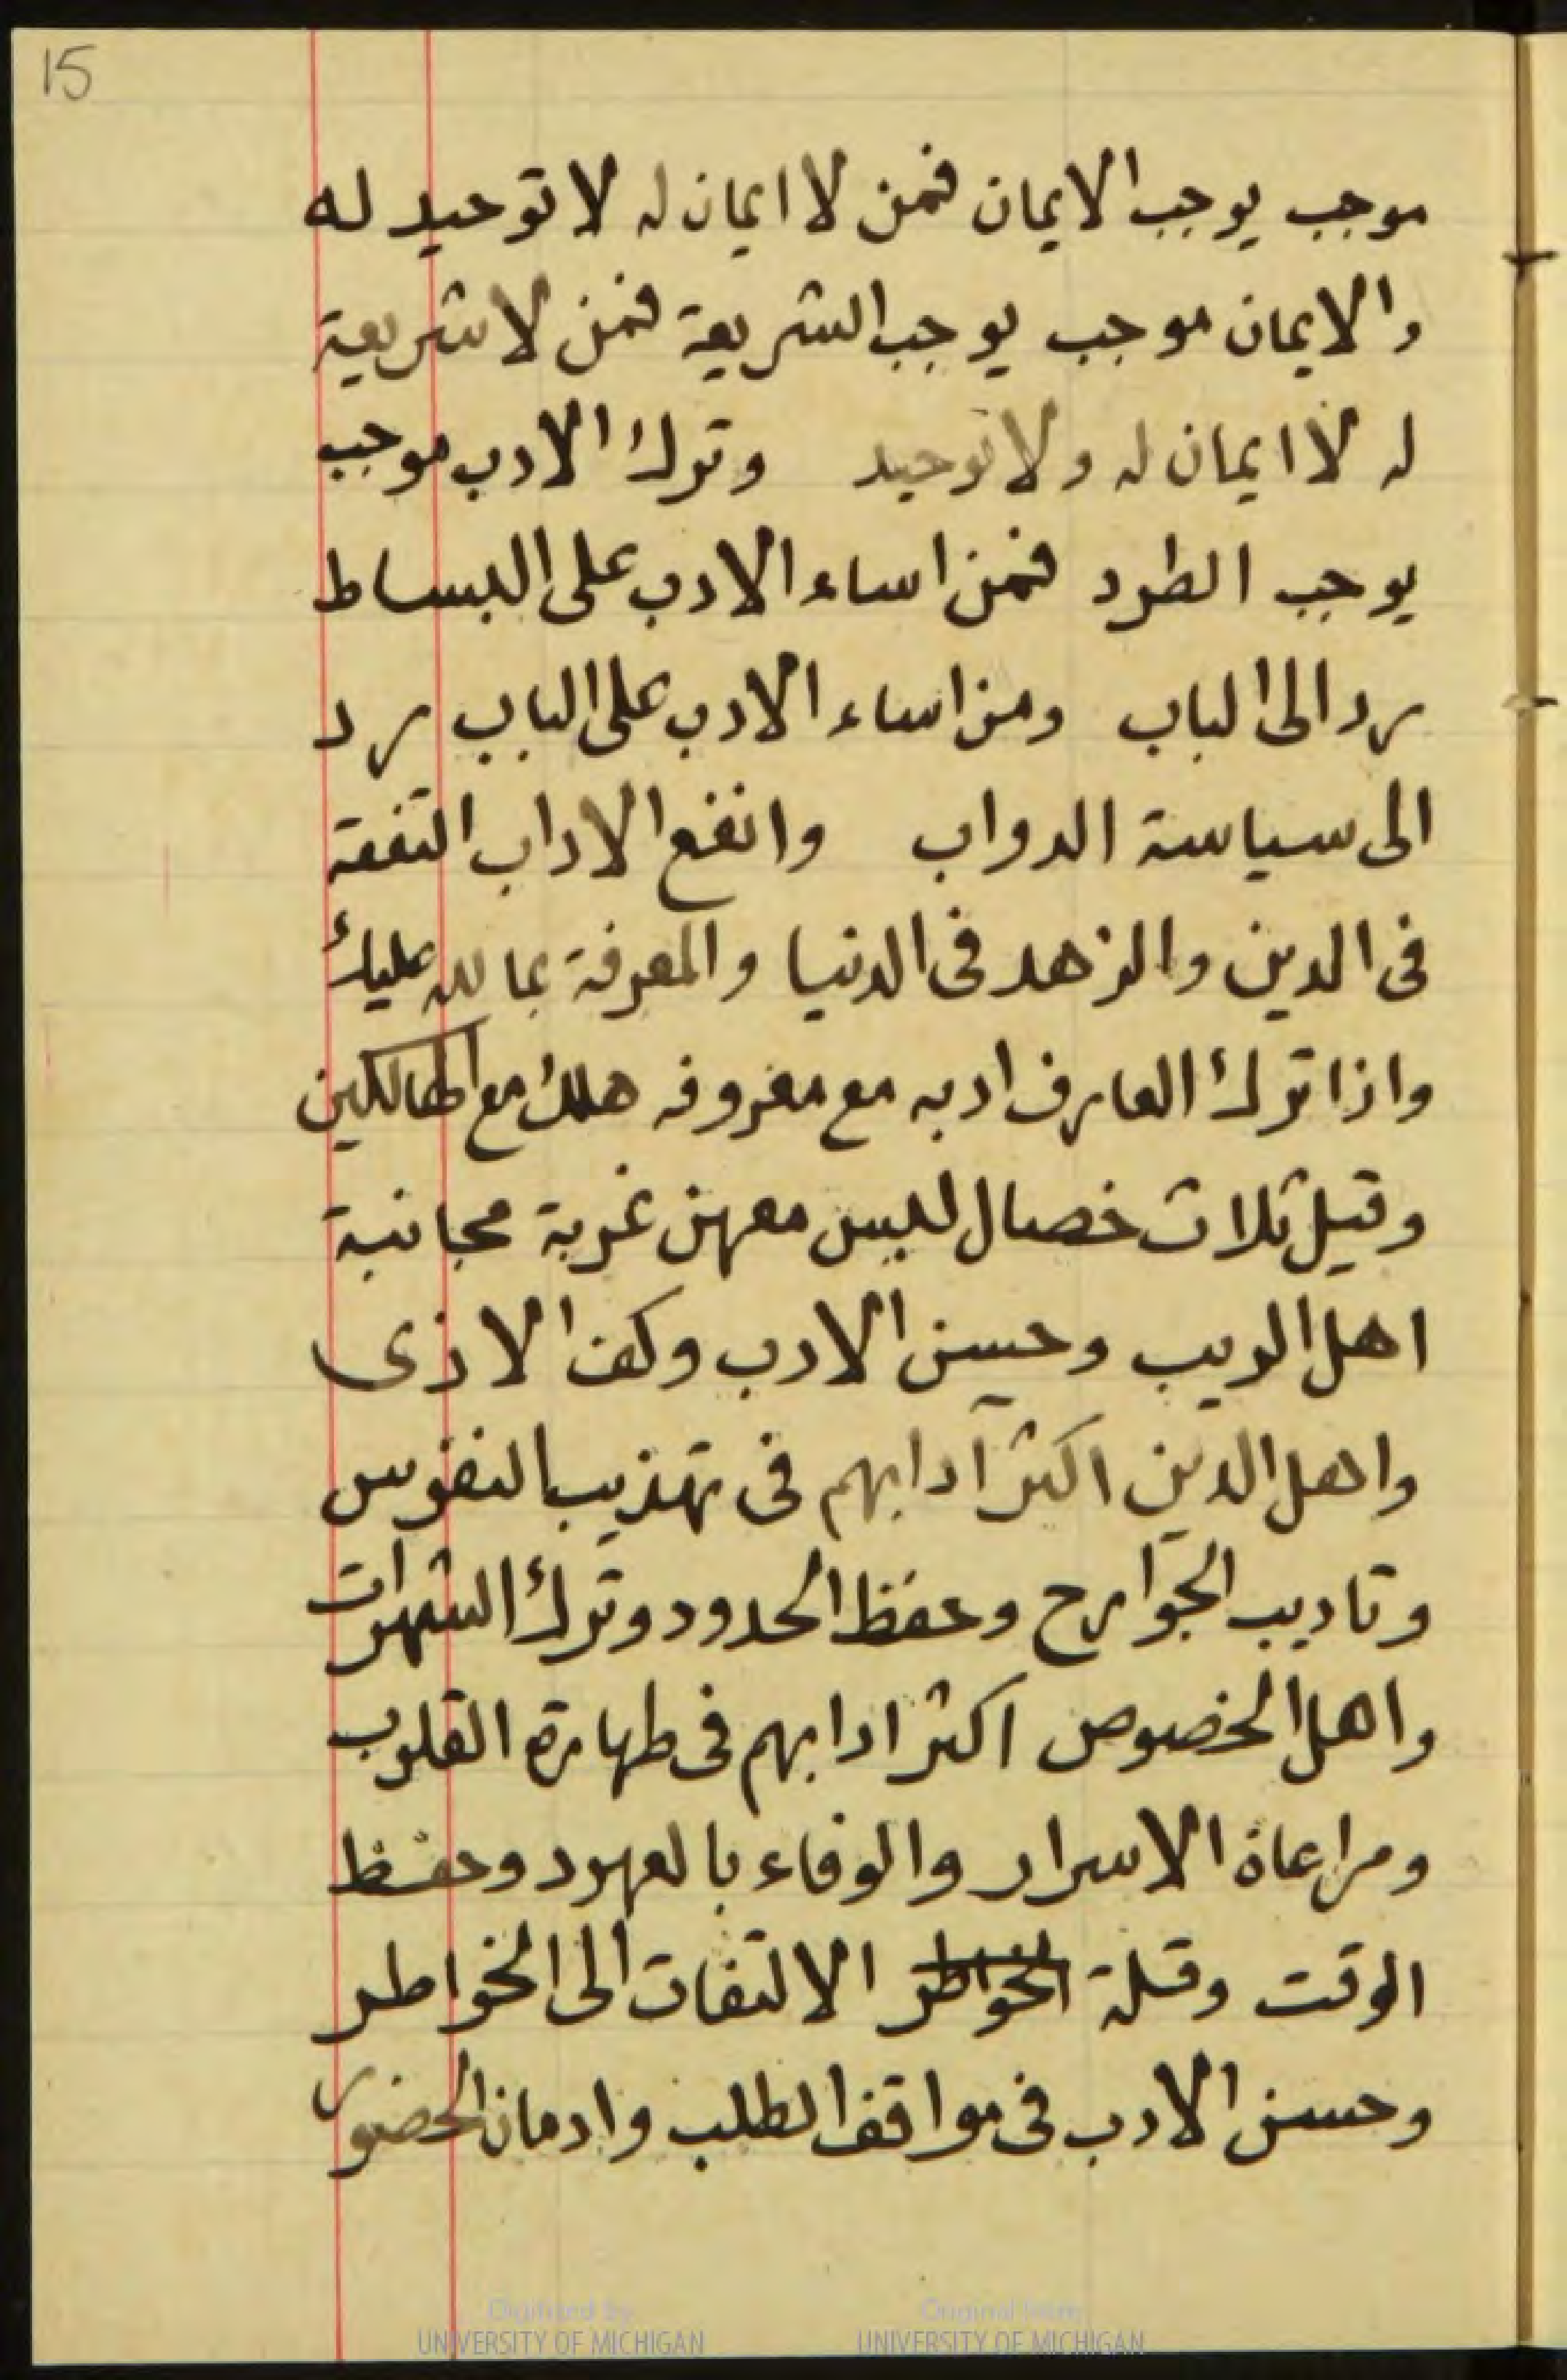 15
موجب يوجب الايمان فمن لا ايمان له لا توحيد له
والايمان موجب يوجب الشريعة فمن لا شريعة
له لا ايمان له ولا توحيد وترك الادب موجب
يوجب الطرد فمن اساء الادب على البساط
رد الى الباب ومن اساء الادب على الباب رد
الى سياسة الدواب وانفع الاداب التفقه
فى الدين والزهد فى الدنيا والمعرفة بما لله عليك
واذا ترك العارف ادبه مع معروفه هلك مع الهالكين
وقيل ثلاث خصال ليس معهن غربة مجانبة
اهل الريب وحسن الادب وكف الاذى
واهل الدين اكثر آدابهم فى تهذيب النفوس
وتاديب الجوارح وحفظ الحدود وترك الشهوات
واهل الخصوص اكثر ادابهم فى طهارة القلوب
ومراعاة الاسرار والوفاء بالعهود وحفظ
الوقت وقلة الخواطر الالتفات الى الخواطر
وحسن الادب فى مواقف الطلب وادمان الحضور
Digitized by
UNIVERSITY OF MICHIGAN
Original from
UNIVERSITY OF MICHIGAN